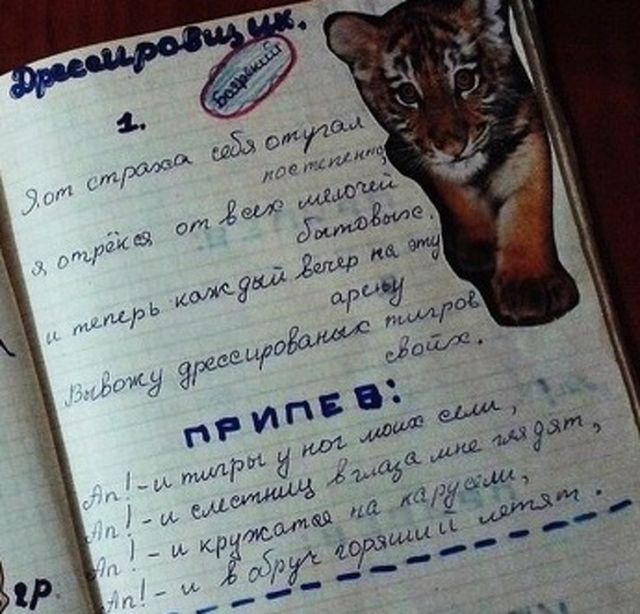 Дрессировщик.
Боярский
1.
Я от страха себя отучал
постепенно,
я отрёкся от всех мелочей
бытовых.
и теперь каждый вечер на эту
арену
Вывожу дрессированых тигров
своих.
ПРИПЕВ:
Ап! - и тигры у ног моих сели,
Ап! - и с лестниц в глаза мне глядят,
Ап! - и кружатся на карусели,
Ап! - и в обруч горящий летят.
гр.